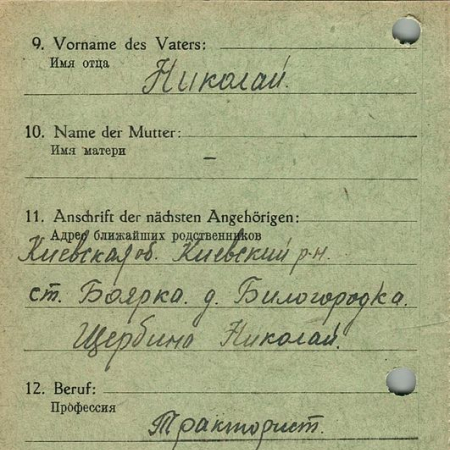 9. Vorname des Vaters:
Имя отца
Николай.
10. Name der Mutter:
Имя матери
–
11. Anschrift der nächsten Angehörigen:
Адрес ближайших родственников
Киевская об. Киевский р-н.
ст. Боярка. д. Билогородка.
Щербино Николай.
12. Beruf:
Профессия
Тракторист.